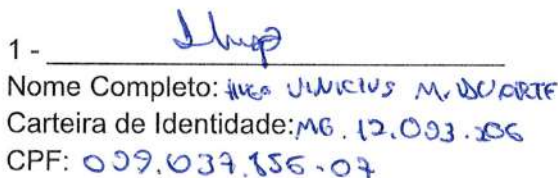 1 - Hugo
Nome Completo: Hugo Vinicius M. Duarte
Carteira de Identidade: MG. 12.093.206
CPF: 099.037.856-07